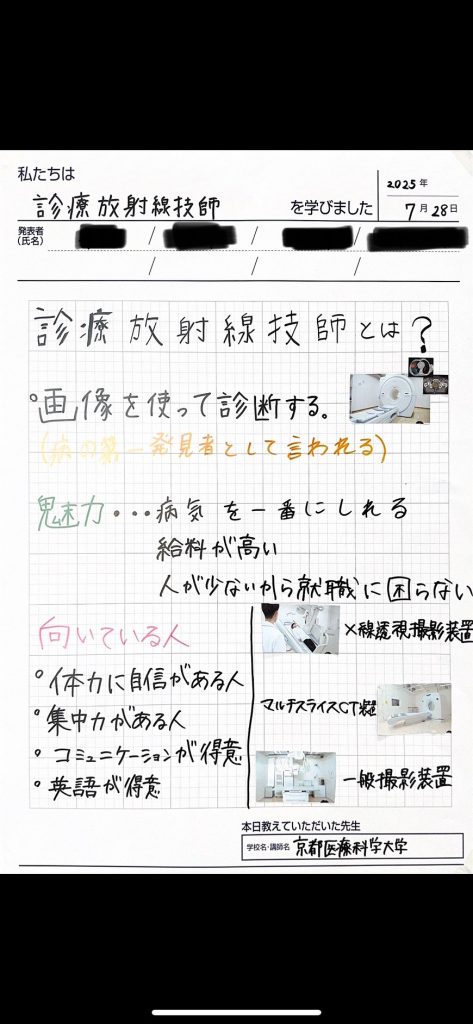 私たちは
診療放射線技師 を学びました
2025年
7月28日
発表者
(氏名)
診療放射線技師とは?
画像を使って診断する。
(病の第一発見者として言われる)
魅力・・・病気を一番にしれる
給料が高い
人が少ないから就職に困らない
向いている人
体力に自信がある人
集中力がある人
コミュニケーションが得意
英語が得意
X線透視撮影装置
マルチスライスCT装置
一般撮影装置
本日教えていただいた先生
学校名・講師名 京都医療科学大学